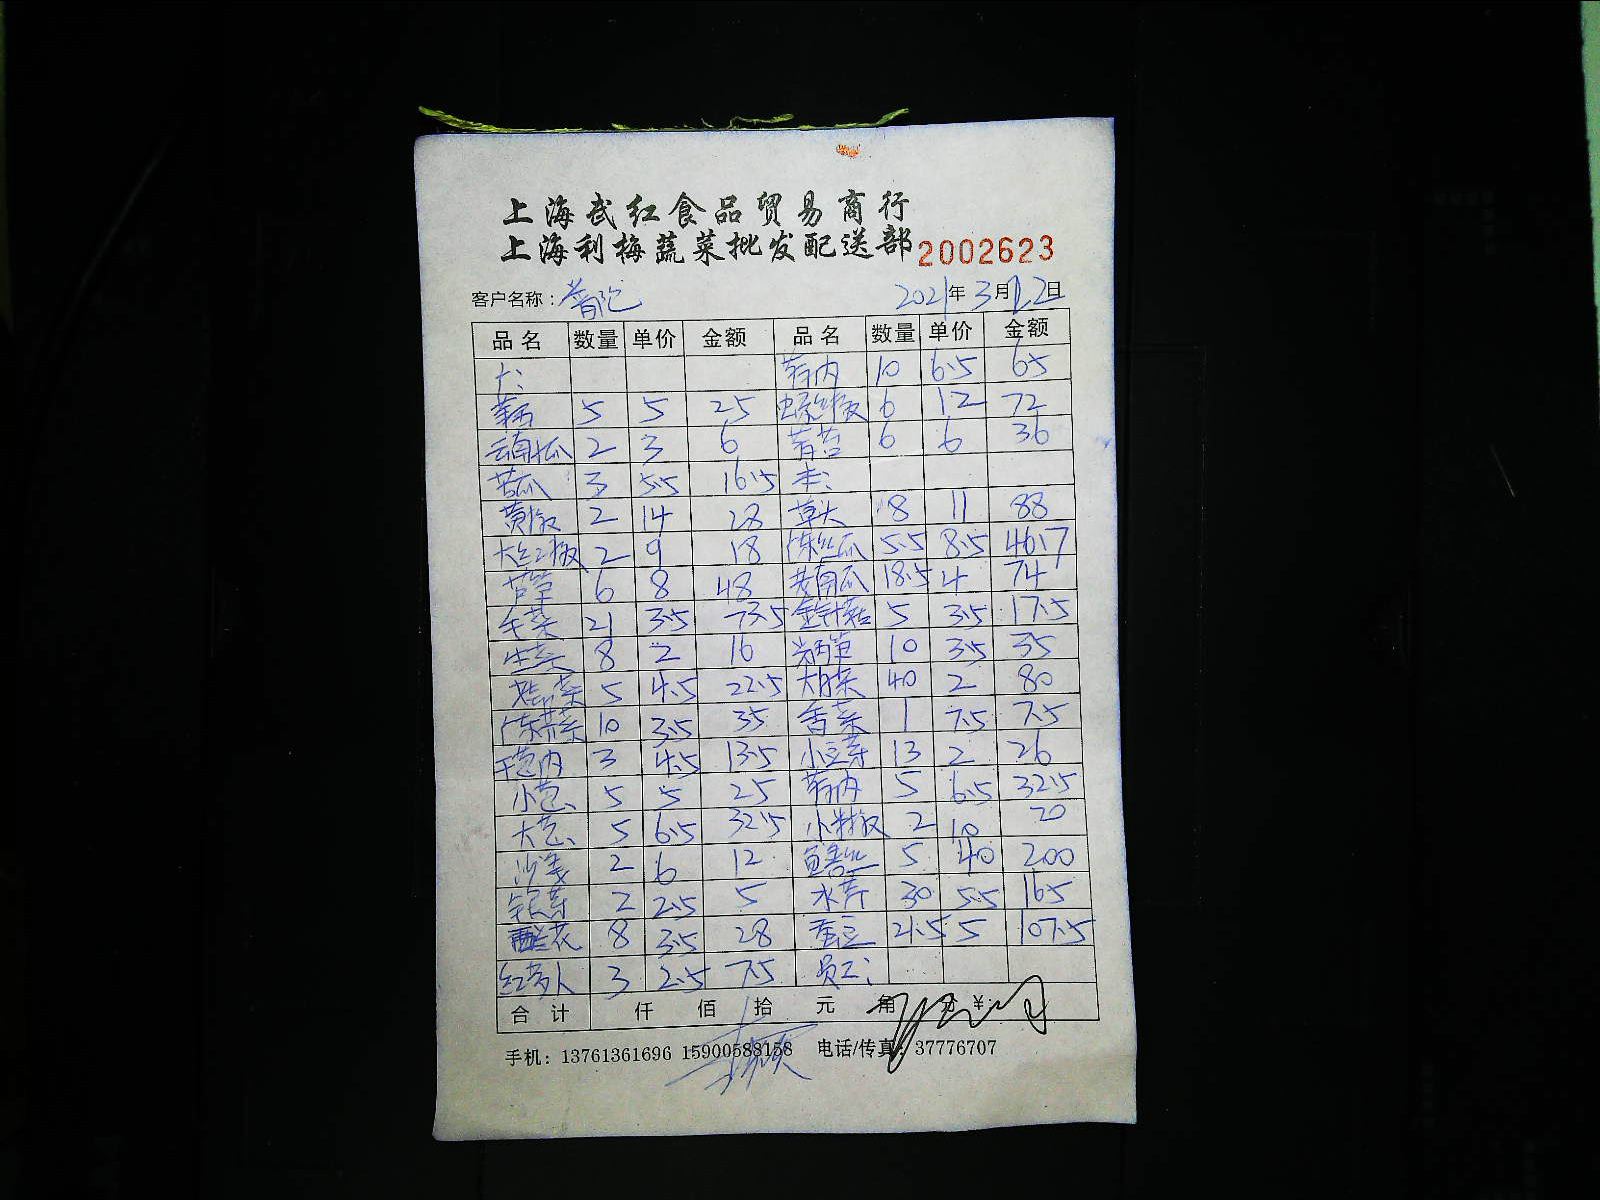 上海武红食品贸易商行
上海利梅蔬菜批发配送部 2002623
客户名称: 普陀 2021年3月12日
品名 数量 单价 金额 品名 数量 单价 金额
6.5 65 10
5 5 25 螺丝椒 6 12 72
云南瓜 2 3 6 青苔 6 6 36
苦瓜 3 5.5 16.5
黄椒 2 14 28 草头 8 11 88
大红椒 2 9 18 广东丝瓜 5.5 8.5 46.7
芦笋 6 8 48 老南瓜 18.5 4 74
毛菜 21 3.5 73.5 金针菇 5 3.5 17.5
生菜 8 2 16 10 3.5 35
5 4.5 22.5 40 2 80
广东菜 10 3.5 35 香菜 1 7.5 7.5
3 4.5 13.5 小豆芽 13 2 26
小芒、 5 5 25 5 6.5 32.5
大芒、 5 6.5 32.5 小米椒 2 10 20
2 6 12 鳝丝 5 40 200
银芽 2 2.5 5 水芹 30 5.5 165
花 8 3.5 28 蚕豆 21.5 5 107.5
红萝卜 3 2.5 7.5 员工:
合计 仟 佰 拾 元 角 分 ¥:
手机: 13761361696 15900588158 电话/传真: 37776707